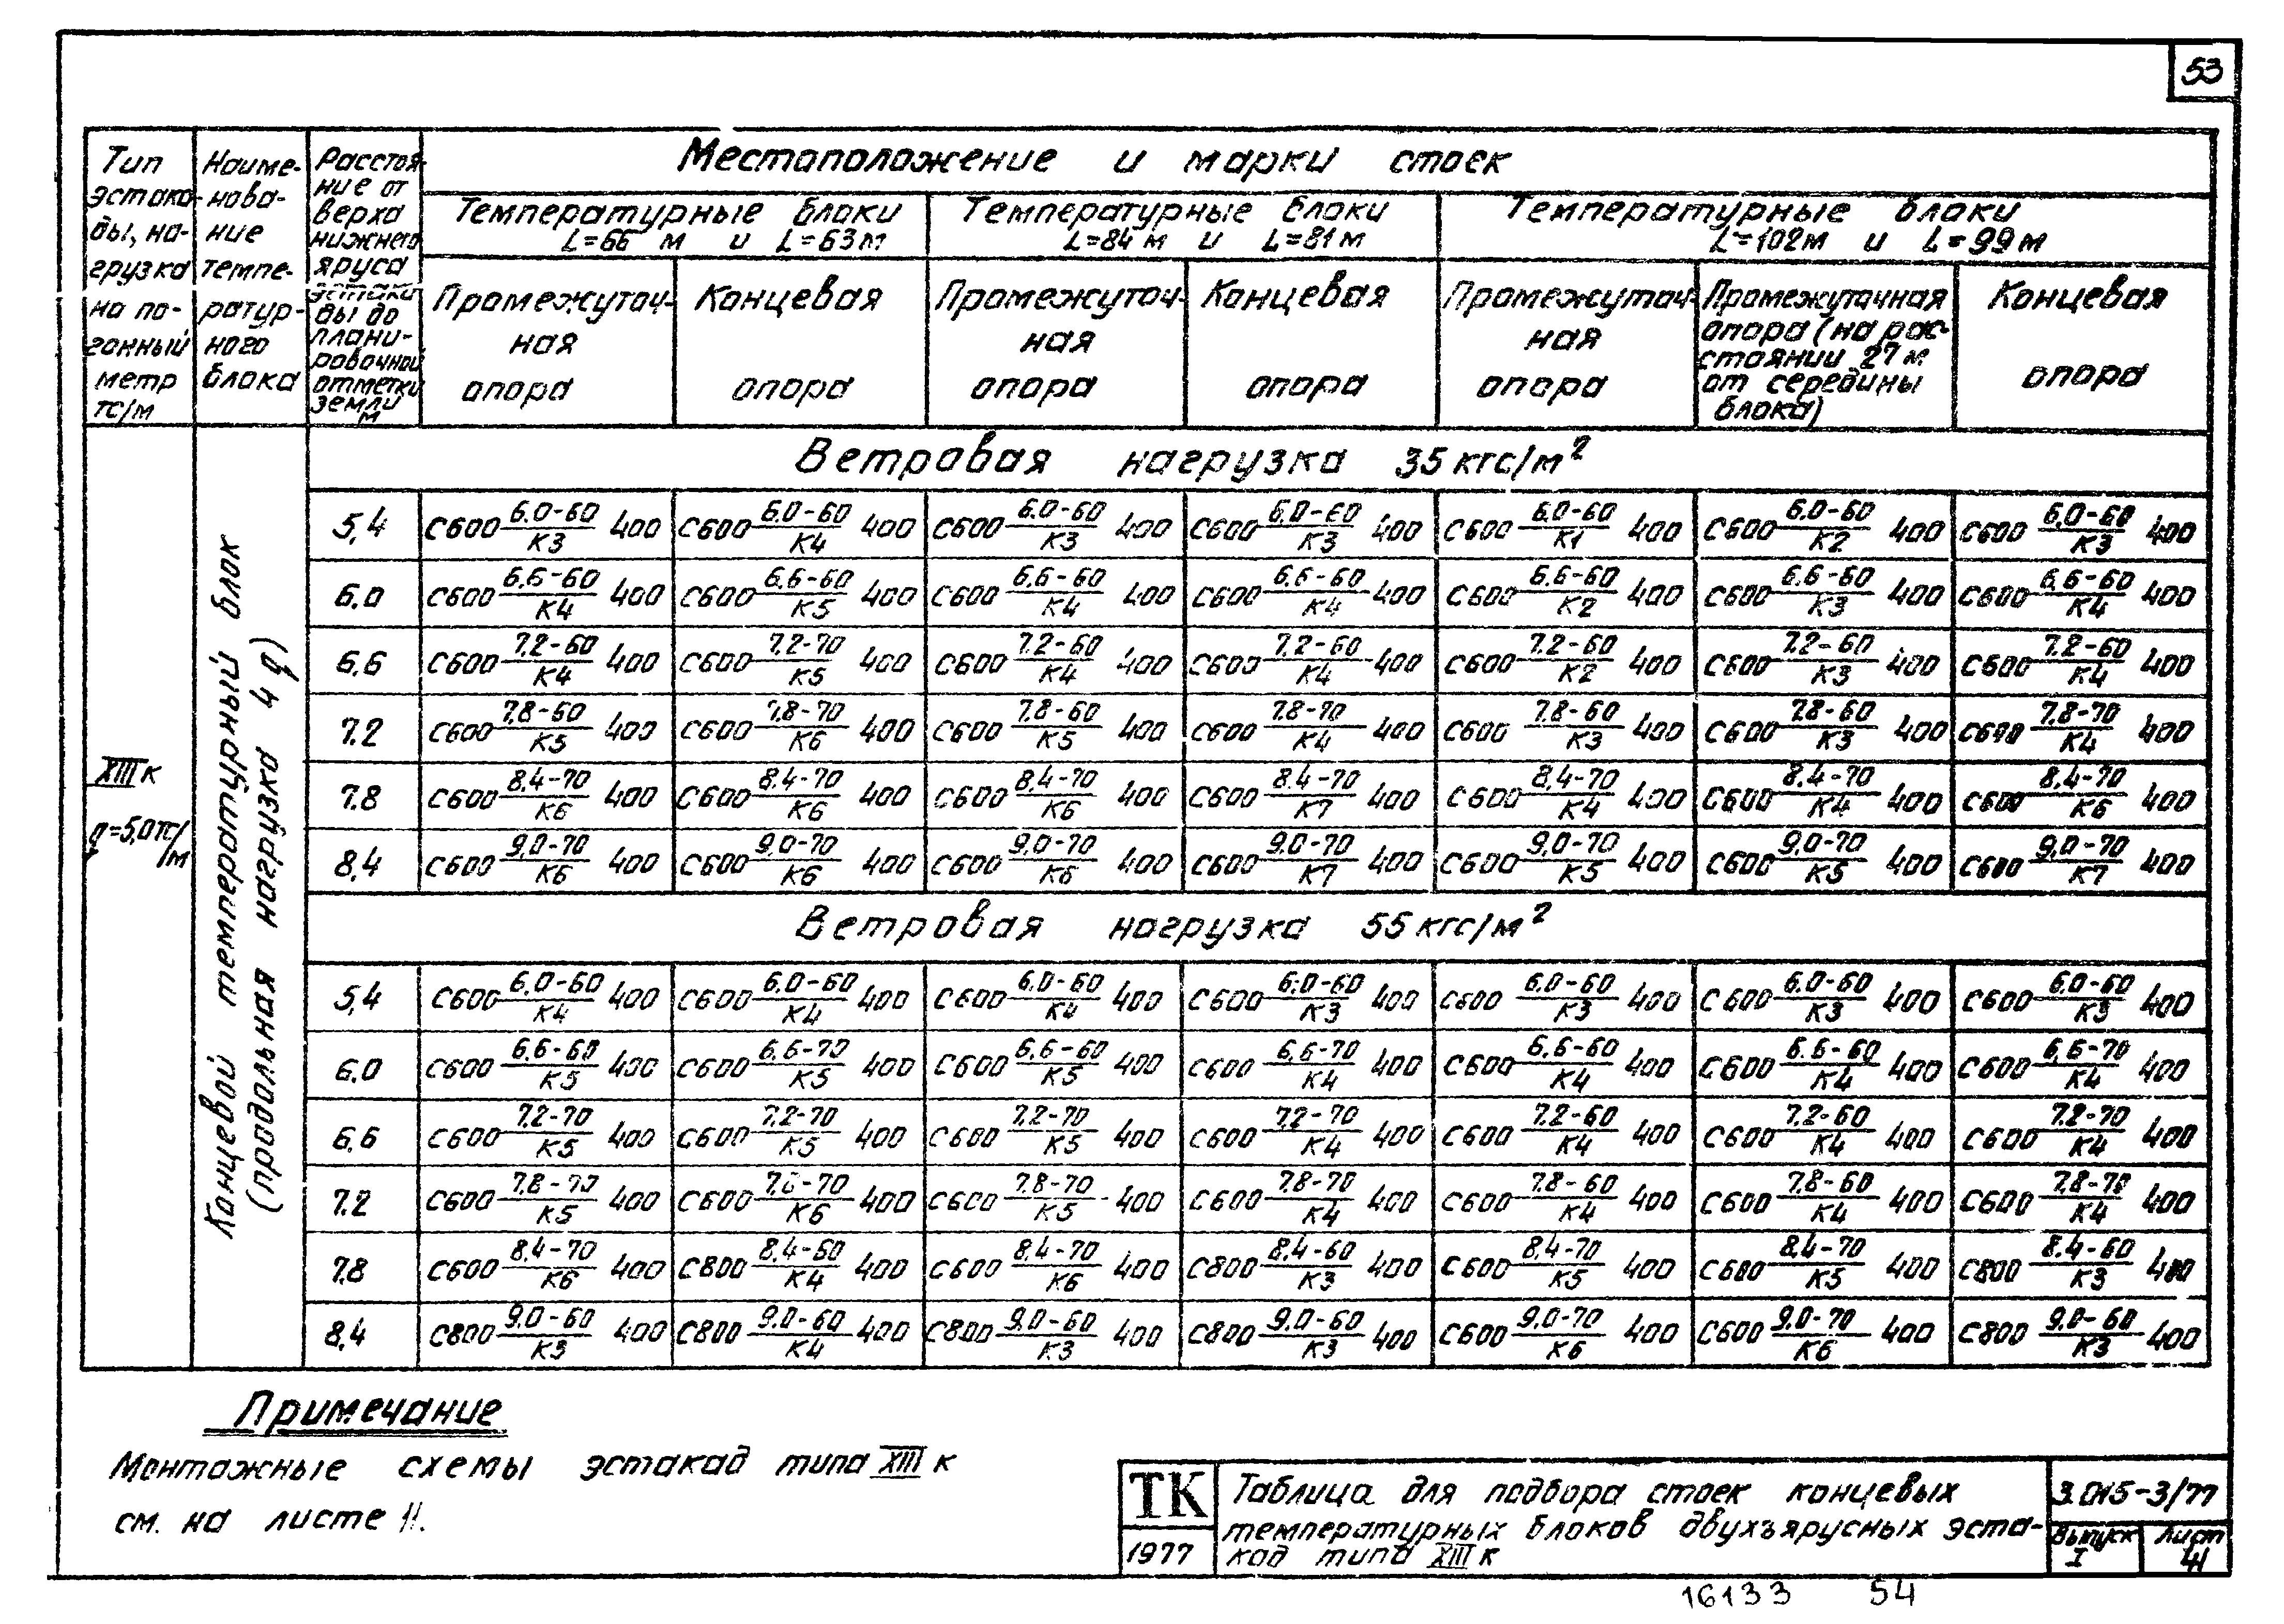 53
Тип эстакады, нагрузка на погонный метр тс/м
Наименование температурного блока
Расстояние от верха нижнего яруса эстакады до планировочной отметки земли м
Местоположение и марки стоек
Температурные блоки L=66 м и L=63м
Температурные блоки L=84м и L=81м
Температурные блоки L=102м и L=99м
Промежуточная опора
Концевая опора
Промежуточная опора
Концевая опора
Промежуточная опора
Промежуточная опора (на расстоянии 27м от середины блока)
Концевая опора
XIIIк
q=5,0тс/м
Концевой температурный блок
(продольная нагрузка 4q)
Ветровая нагрузка 35кгс/м²
5,4 С600 6.0-60/К3 400 С600 6.0-60/К4 400 С600 6.0-60/К3 400 С600 6.0-60/К3 400 С600 6.0-60/К1 400 С600 6.0-60/К2 400 С600 6.0-60/К3 400
6.0 С600 6.6-60/К4 400 С600 6.6-60/К5 400 С600 6.6-60/К4 400 С600 6.6-60/К4 400 С600 6.6-60/К2 400 С600 6.6-60/К3 400 С600 6.6-60/К4 400
6,6 С600 7.2-60/К4 400 С600 7.2-70/К5 400 С600 7.2-60/К4 400 С600 7.2-60/К4 400 С600 7.2-60/К2 400 С600 7.2-60/К3 400 С600 7.2-60/К4 400
7.2 С600 7.8-60/К5 400 С600 7.8-70/К6 400 С600 7.8-60/К5 400 С600 7.8-70/К4 400 С600 7.8-60/К3 400 С600 7.8-60/К3 400 С600 7.8-70/К4 400
7.8 С600 8,4-70/К6 400 С600 8.4-70/К6 400 С600 8,4-70/К6 400 С600 8.4-70/К7 400 С600 8,4-70/К4 400 С600 8.4-70/К4 400 С600 8,4-70/К6 400
8,4 С600 9.0-70/К6 400 С600 9,0-70/К6 400 С600 9.0-70/К6 400 С600 9.0-70/К7 400 С600 9,0-70/К5 400 С600 9,0-70/К5 400 С600 9,0-70/К7 400
Ветровая нагрузка 55кгс/м²
5,4 С600 6.0-60/К4 400 С600 6.0-60/К4 400 С600 6.0-60/К4 400 С600 6.0-60/К3 400 С600 6.0-60/К3 400 С600 6.0-60/К3 400 С600 6.0-60/К3 400
6.0 С600 6.6-60/К5 400 С600 6.6-70/К5 400 С600 6.6-60/К5 400 С600 6,6-70/К4 400 С600 6.6-60/К4 400 С600 6.6-60/К4 400 С600 6,6-70/К4 400
6,6 С600 7.2-70/К5 400 С600 7.2-70/К5 400 С600 7.2-70/К5 400 С600 7.2-70/К4 400 С600 7.2-60/К4 400 С600 7.2-60/К4 400 С600 7.2-70/К4 400
7.2 С600 7.8-70/К5 400 С600 7.8-70/К6 400 С600 7.8-70/К5 400 С600 7.8-70/К4 400 С600 7.8-60/К4 400 С600 7.8-60/К4 400 С600 7.8-70/К4 400
7.8 С600 8,4-70/К6 400 С800 8.4-60/К4 400 С600 8,4-70/К6 400 С800 8.4-60/К3 400 С600 8,4-70/К5 400 С600 8.4-70/К5 400 С800 8.4-60/К3 400
8,4 С800 9.0-60/К3 400 С800 9.0-60/К4 400 С800 9.0-60/К3 400 С800 9.0-60/К3 400 С600 9.0-70/К6 400 С600 9.0-70/К6 400 С800 9.0-60/К3 400
Примечание
Монтажные схемы эстакад типа XIII к
см. на листе 11.
ТК
1977
Таблица для подбора стоек концевых
температурных блоков двухъярусных эста-
кад типа XIII к
3.015-3/77
Выпуск I
Лист 41
16133 54